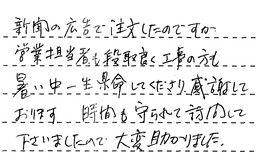 新聞の広告で注文したのですが
営業担当者も段取良く工事の方も
暑い中一生県命してくださり感謝して
おります 時間も守られて訪問して
下さいましたので大変助かりました。